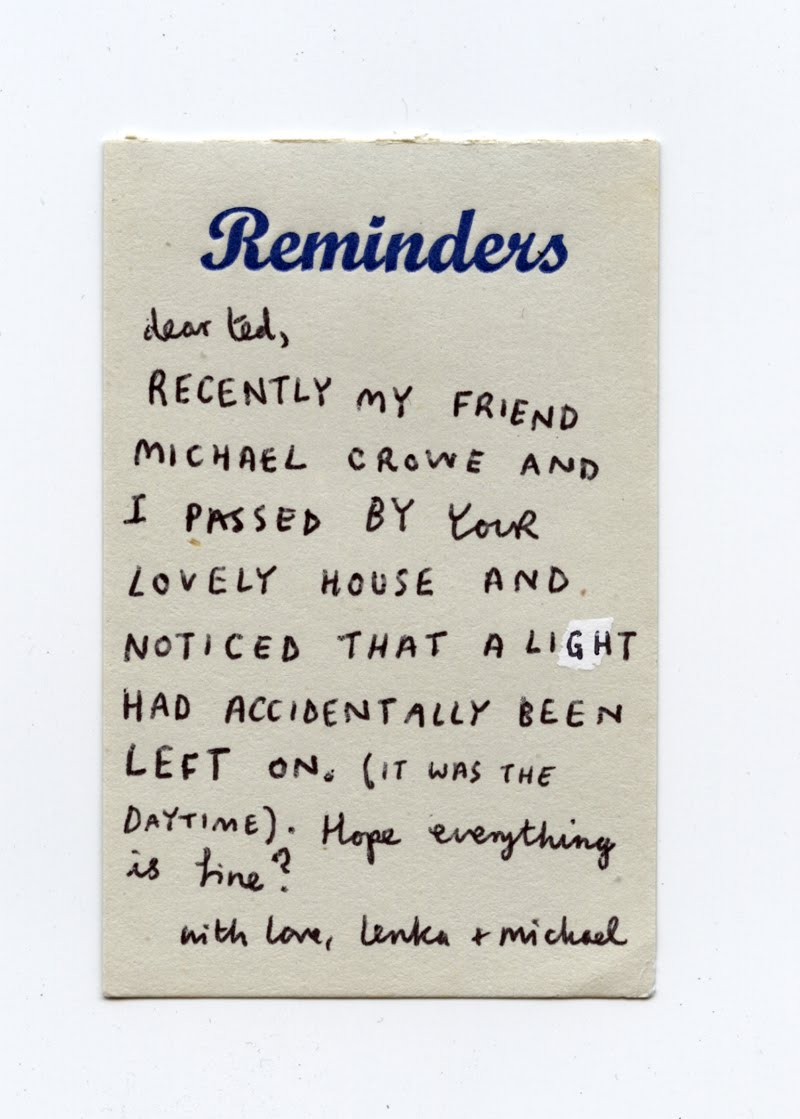 Reminders
dear Ted,
RECENTLY MY FRIEND
MICHAEL CROWE AND
I PASSED BY YOUR
LOVELY HOUSE AND
NOTICED THAT A LIGHT
HAD ACCIDENTALLY BEEN
LEFT ON. (IT WAS THE
DAYTIME). Hope everything
is fine?
with love, lenka + michael